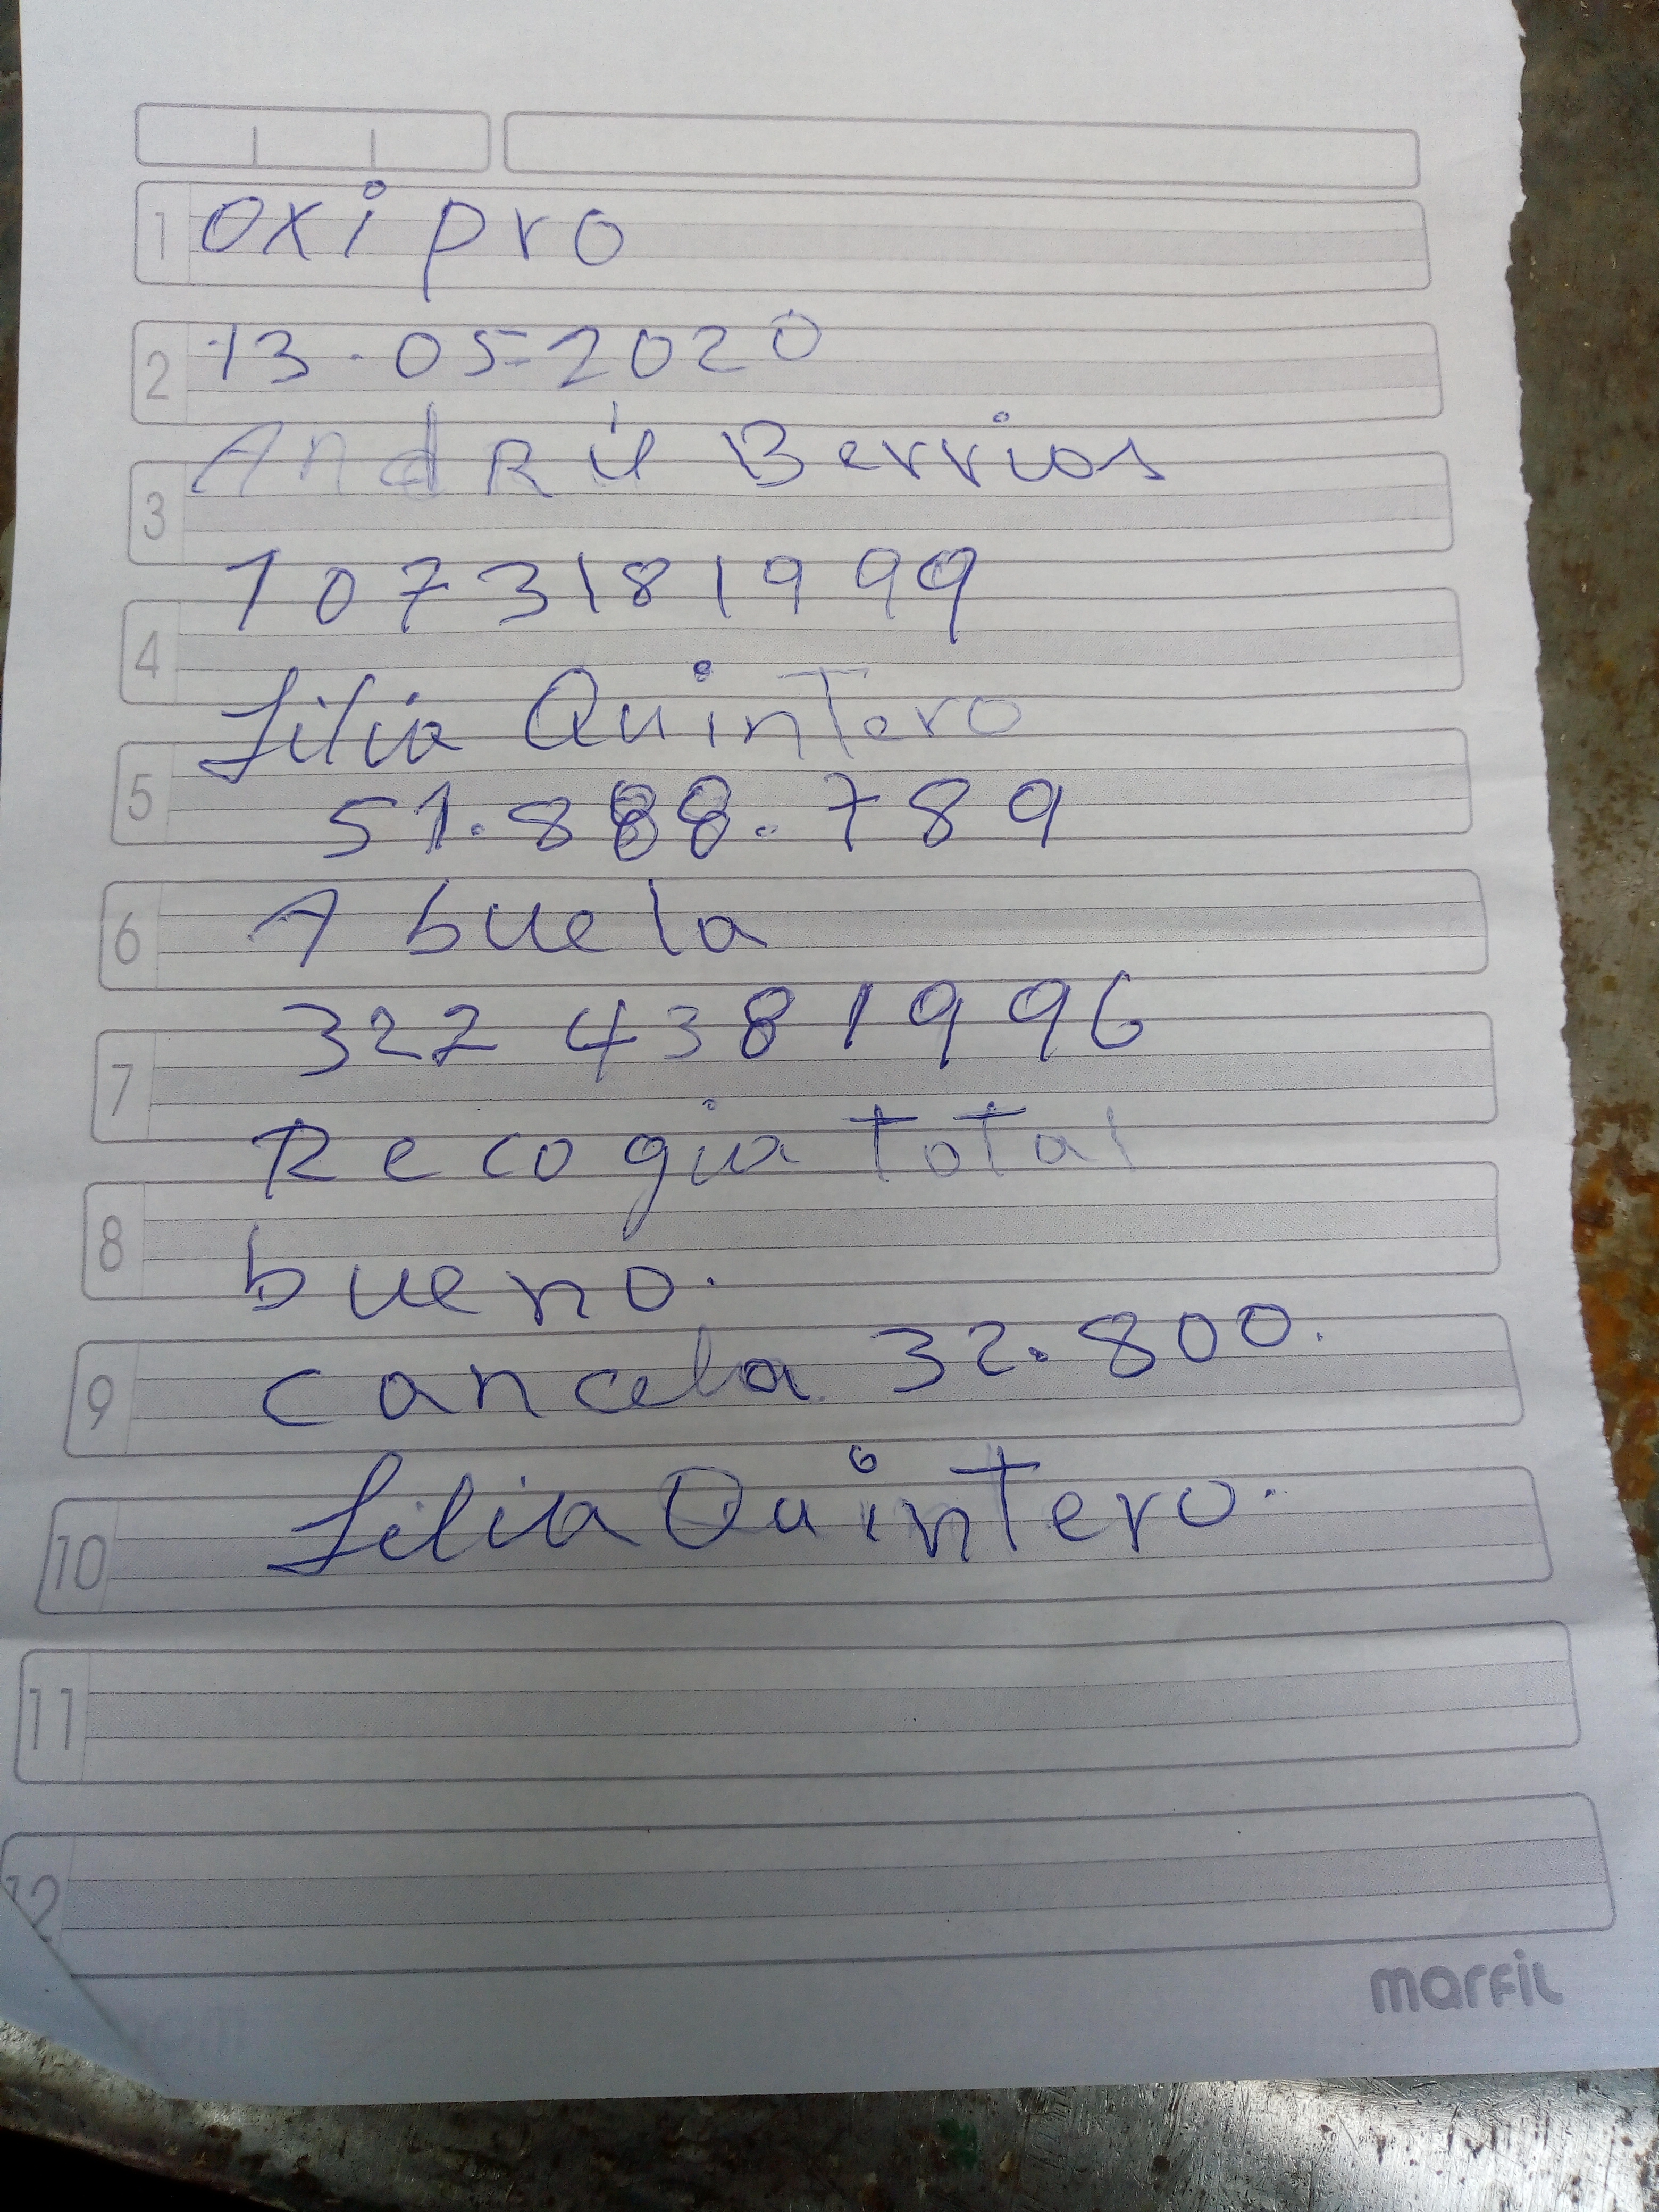 1 oxi pro
2 13.05-2020
Andrú Berrios
3
1073181999
4
Lilia Quintero
5 51.888.789
6 Abuela
322 4381996
7
Recogia total
8
bueno.
9 cancela 32.800.
10 Lilia Quintero.
11
12
marfil